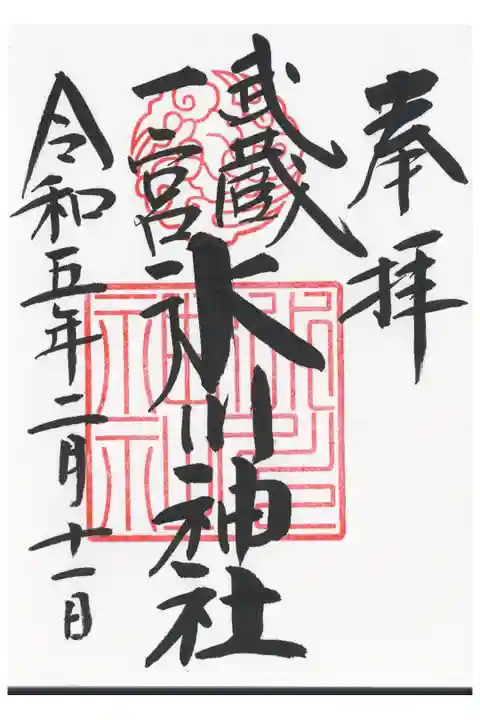 奉拝
武蔵
一宮
氷川神社
令和五年二月十一日
氷川神社